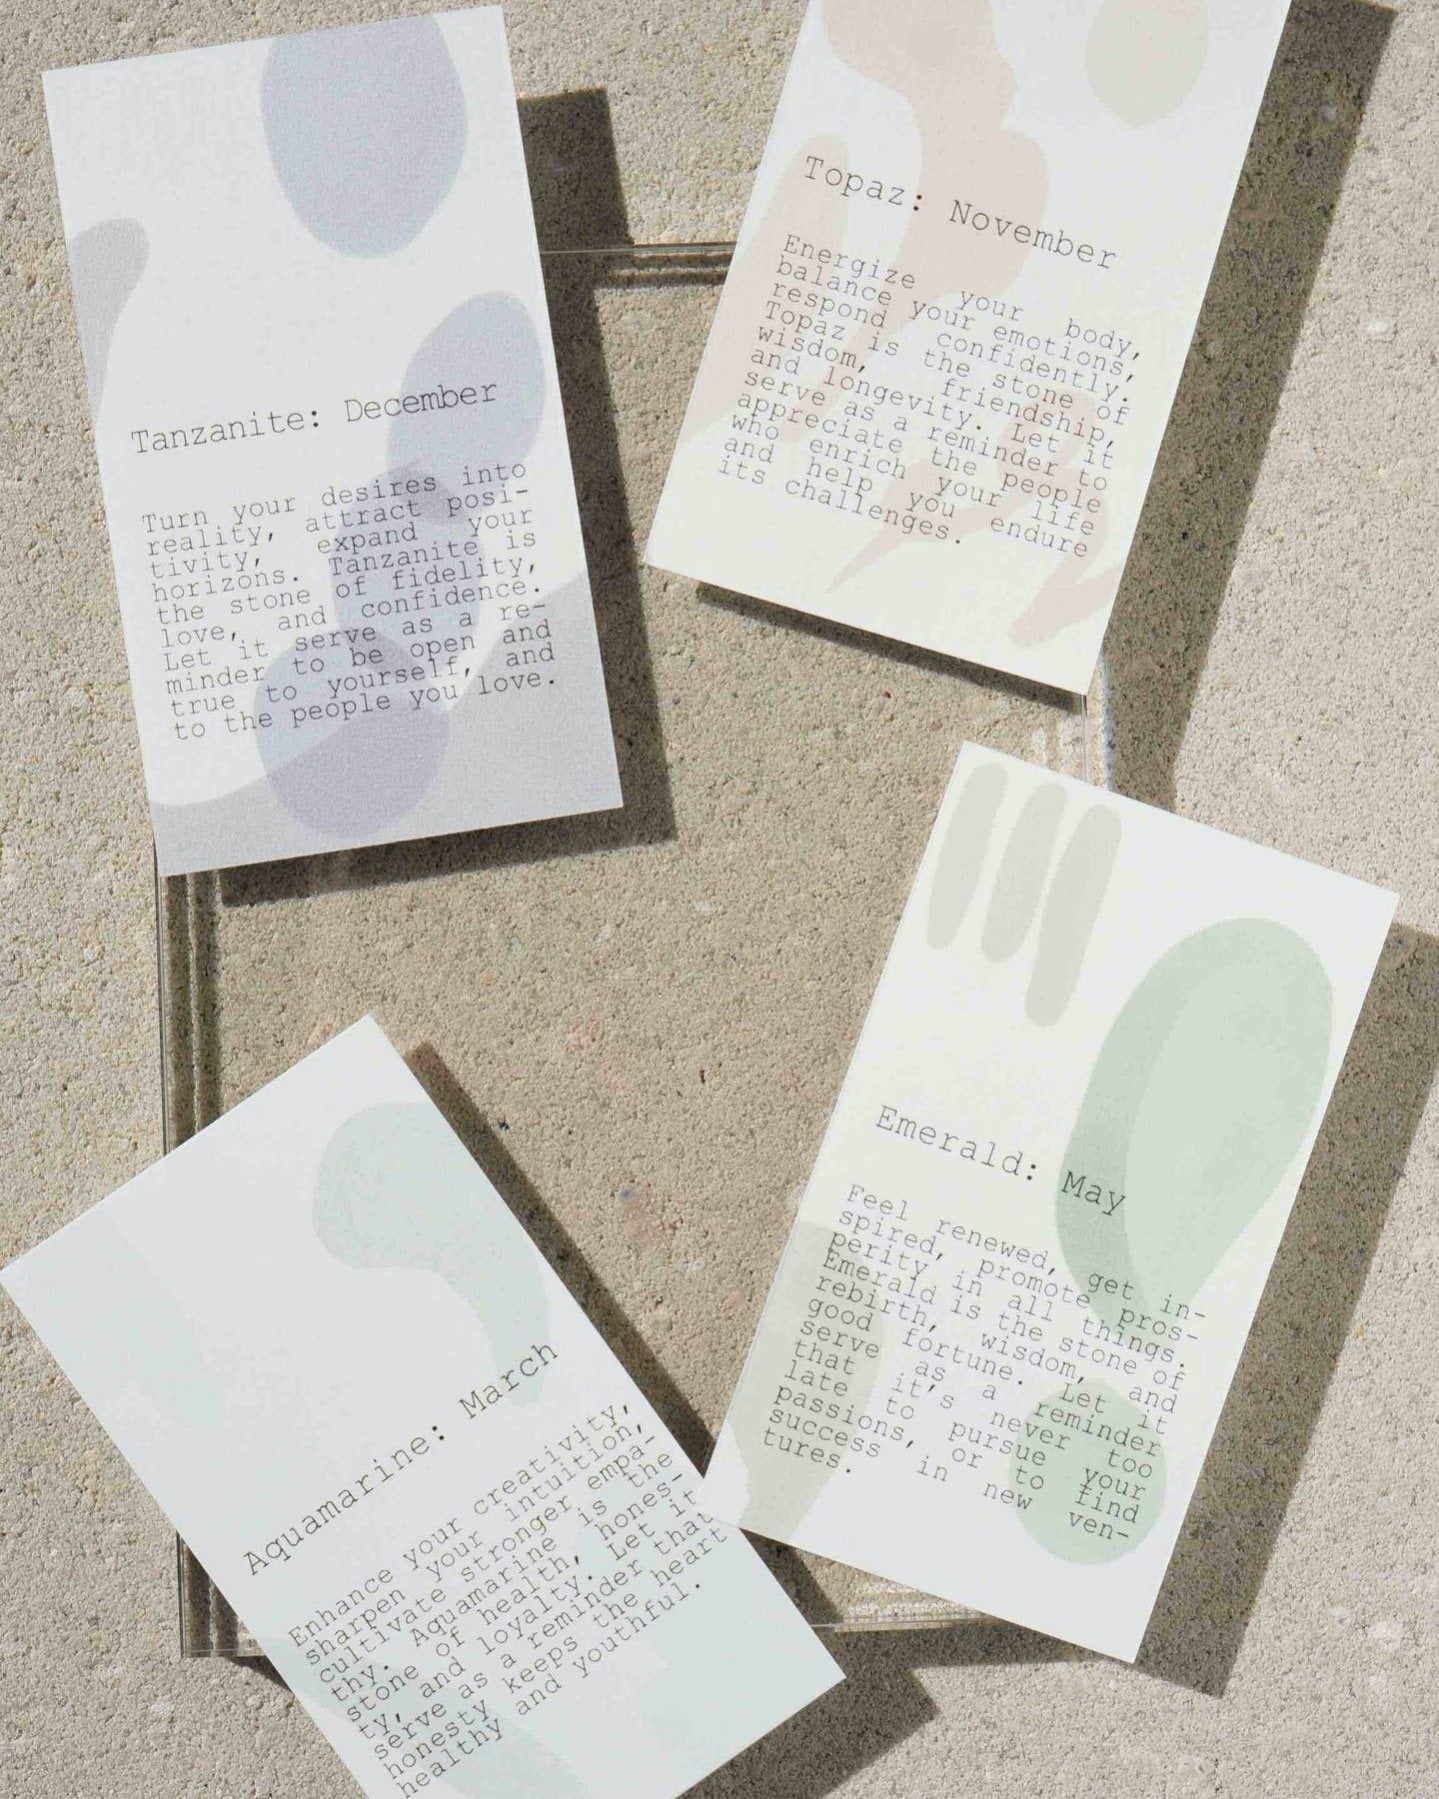 Tanzanite: December
Turn your desires into
reality, attract posi-
tivity, expand your
horizons. Tanzanite is
the stone of fidelity,
love, and confidence.
Let it serve as a re-
minder to be open and
true to yourself, and
to the people you love.
Topaz: November
Energize your body,
balance your emotions,
respond confidently.
Topaz is the stone of
wisdom, friendship,
and longevity. Let it
serve as a reminder to
appreciate the people
who enrich your life
and help you endure
its challenges.
Emerald: May
Feel renewed, get in-
spired, promote pros-
perity in all things.
Emerald is the stone of
rebirth, wisdom, and
good fortune. Let it
serve as a reminder
that it's never too
late to pursue your
passions, or to find
success in new ven-
tures.
Aquamarine: March
Enhance your creativity,
sharpen your intuition,
cultivate stronger empa-
thy. Aquamarine is the
stone of health, hones-
ty, and loyalty. Let it
serve as a reminder that
honesty keeps the heart
healthy and youthful.